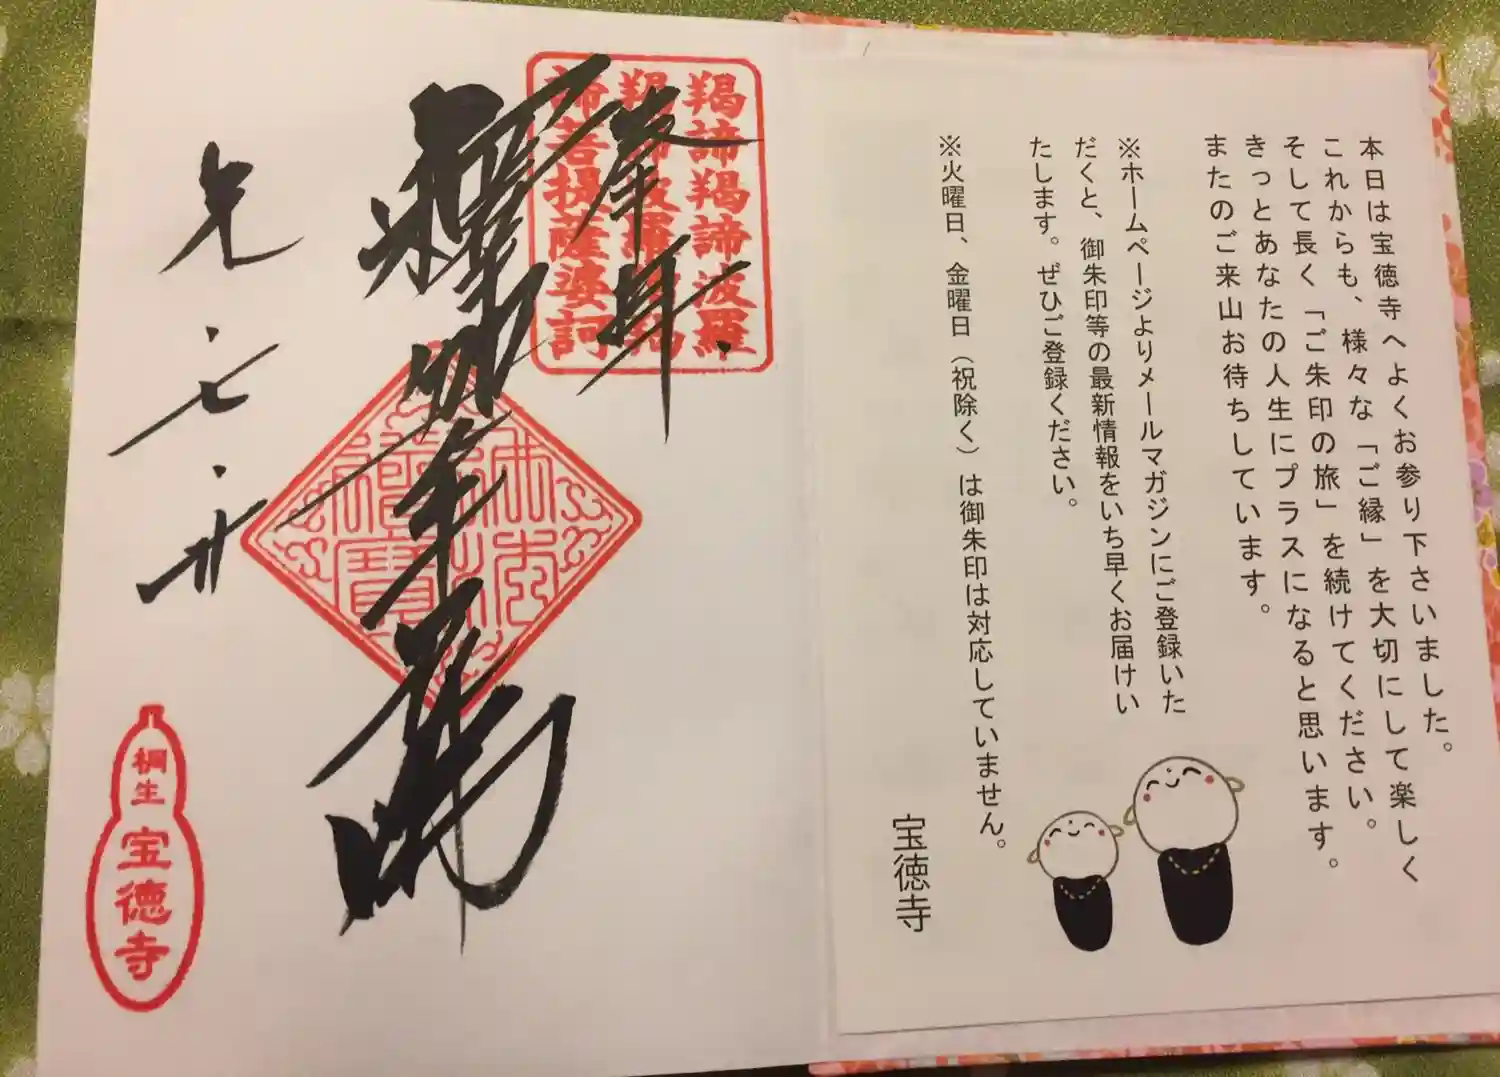 本日は宝徳寺へよくお参り下さいました。
これからも、様々な「ご縁」を大切にして楽しく
そして長く「ご朱印の旅」を続けてください。
きっとあなたの人生にプラスになると思います。
またのご来山お待ちしています。
※ホームページよりメールマガジンにご登録いた
だくと、御朱印等の最新情報をいち早くお届けい
たします。ぜひご登録ください。
※火曜日、金曜日（祝除く）は御朱印は対応していません。
宝徳寺
羯諦羯諦波羅
諦菩提薩婆訶
奉拝
釈迦牟尼佛
元・七・廿
桐生
宝徳寺